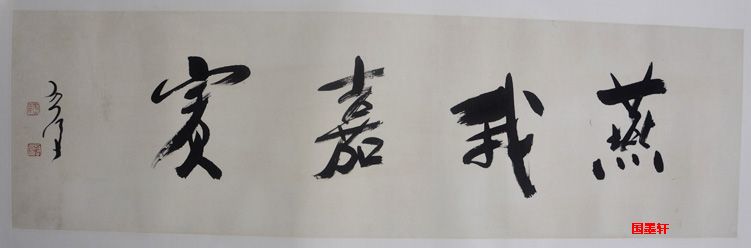 燕我嘉賓
国墨轩